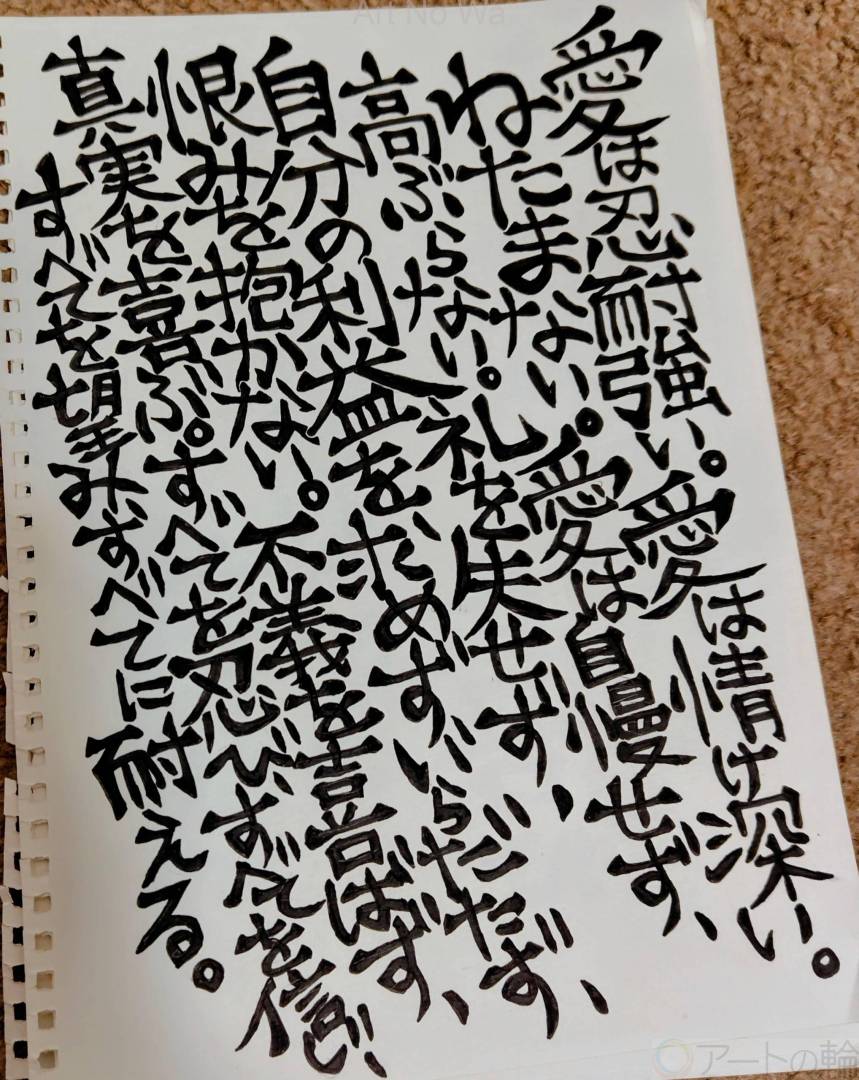 愛は忍耐強い。愛は情け深い。
ねたまない。愛は自慢せず、
高ぶらない。礼を失せず、
自分の利益を求めず、いらだたず、
恨みを抱かない。不義を喜ばず、
真実を喜ぶ。すべてを忍び、すべてを信じ、
すべてを望み、すべてに耐える。
Art No Wa
アートの輪